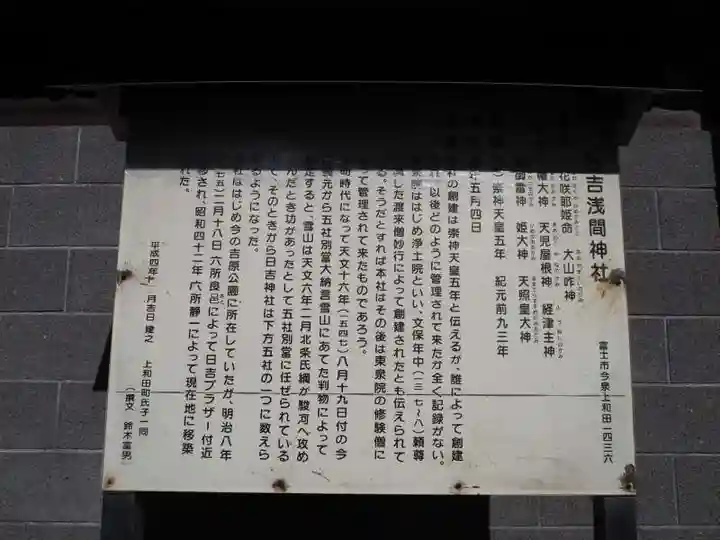 吉浅間神社
富士市今泉上和田一四三六
花咲郎姫命 大山咋神
大神 天児屋根神 経津主神
雷神 姫大神 天照皇大神
崇神天皇五年 紀元前九三年
年五月四日
社の創建は崇神天皇五年と伝えるが、誰によって創建
れ、以後どのように管理されて来たか全く記録がない。
泉院ははじめ浄土院といい、文保年中(一三一七~八)頼尊
した渡来僧妙行によって創建されたとも伝えられて
る。そうだとすれば本社はその後は東泉院の修験僧に
て管理されて来たものであろう。
町時代になって天文十六年(一五四七)八月十九日付の今
義元から五社別當大納言雪山にあてた判物によって
定すると、雪山は天文六年二月北条氏綱が駿河へ攻め
んだとき功があったとして五社別當に任ぜられている
で、そのときから日吉神社は下方五社の一つに数えら
るようになった。
社ははじめ今の吉原公園に所在していたが、明治八年
七五)二月十八日 六所良邑によって日吉プラザー付近
移され、昭和四十二年 六所靜一によって現在地に移築
れた。
平成四年十一月吉日建之 上和田町氏子一同
(撰文 鈴木富男)